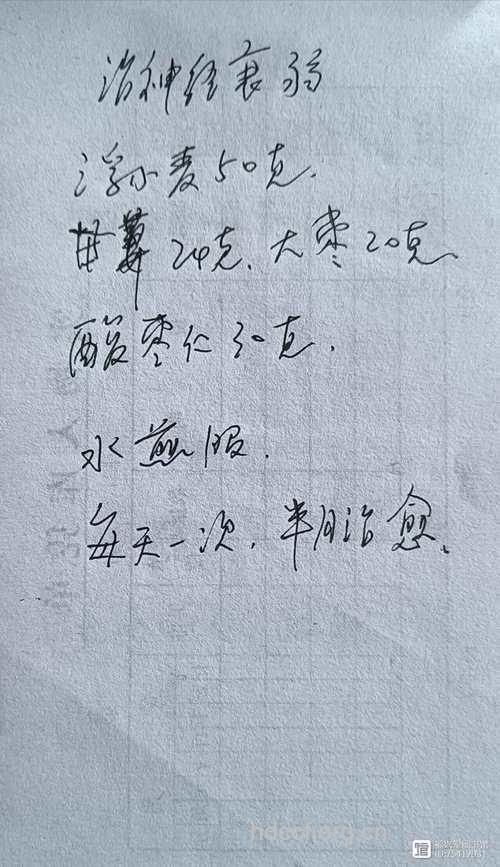 治神经衰弱
浮小麦50克.
甘草24克、大枣20克、
酸枣仁30克.
水煎服.
每天一次.半月治愈.